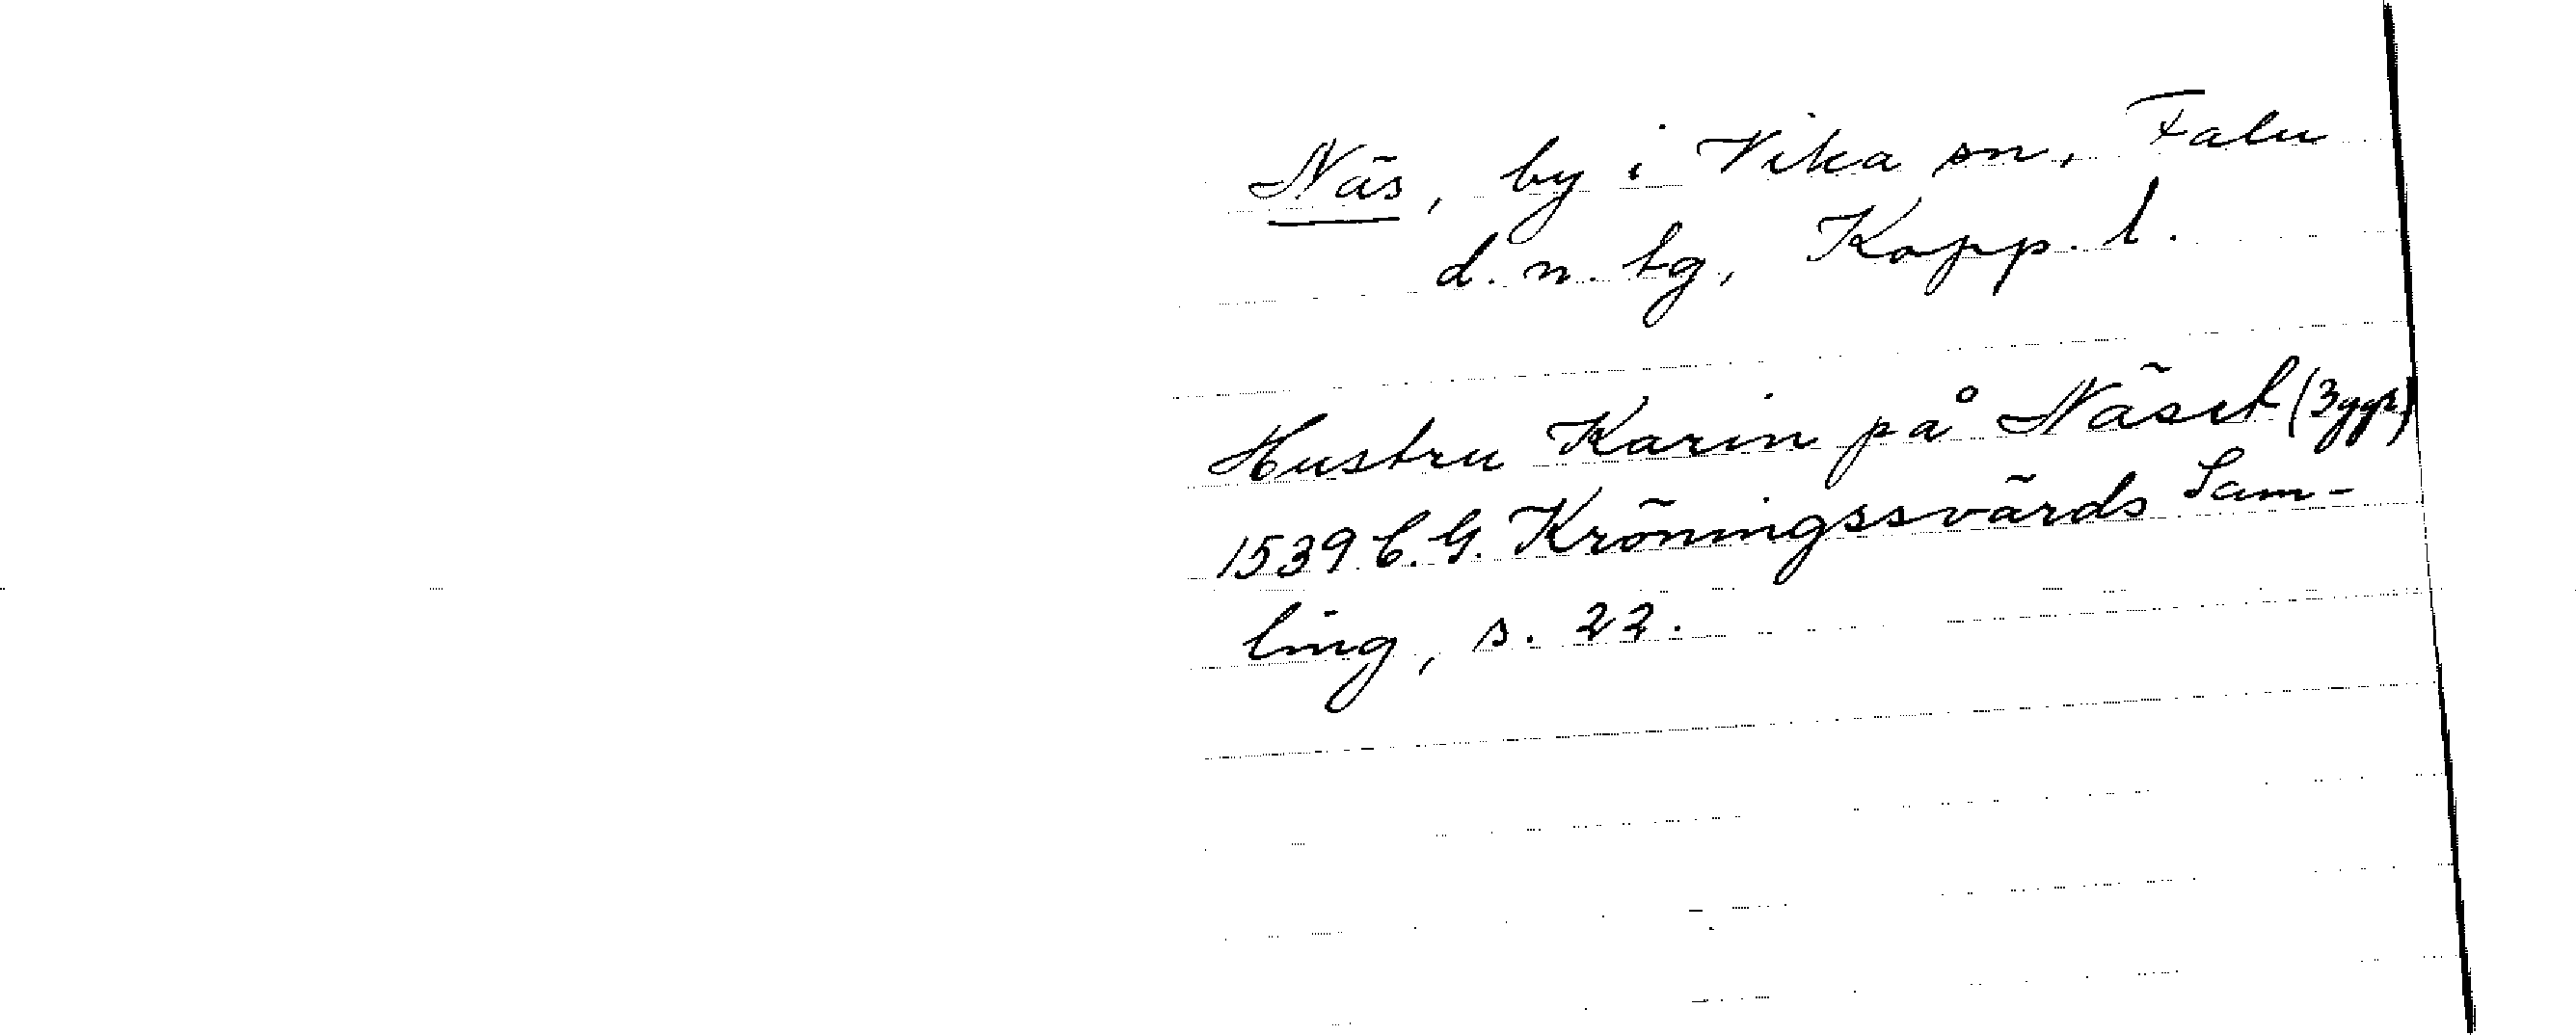 Näs, by i Vika sn, Falu
d. n. tg, Kopp. l.
Hustru Karin på Näset (3 ggr)
1539 C. G. Kröningssvärds Sam-
ling, s. 22.